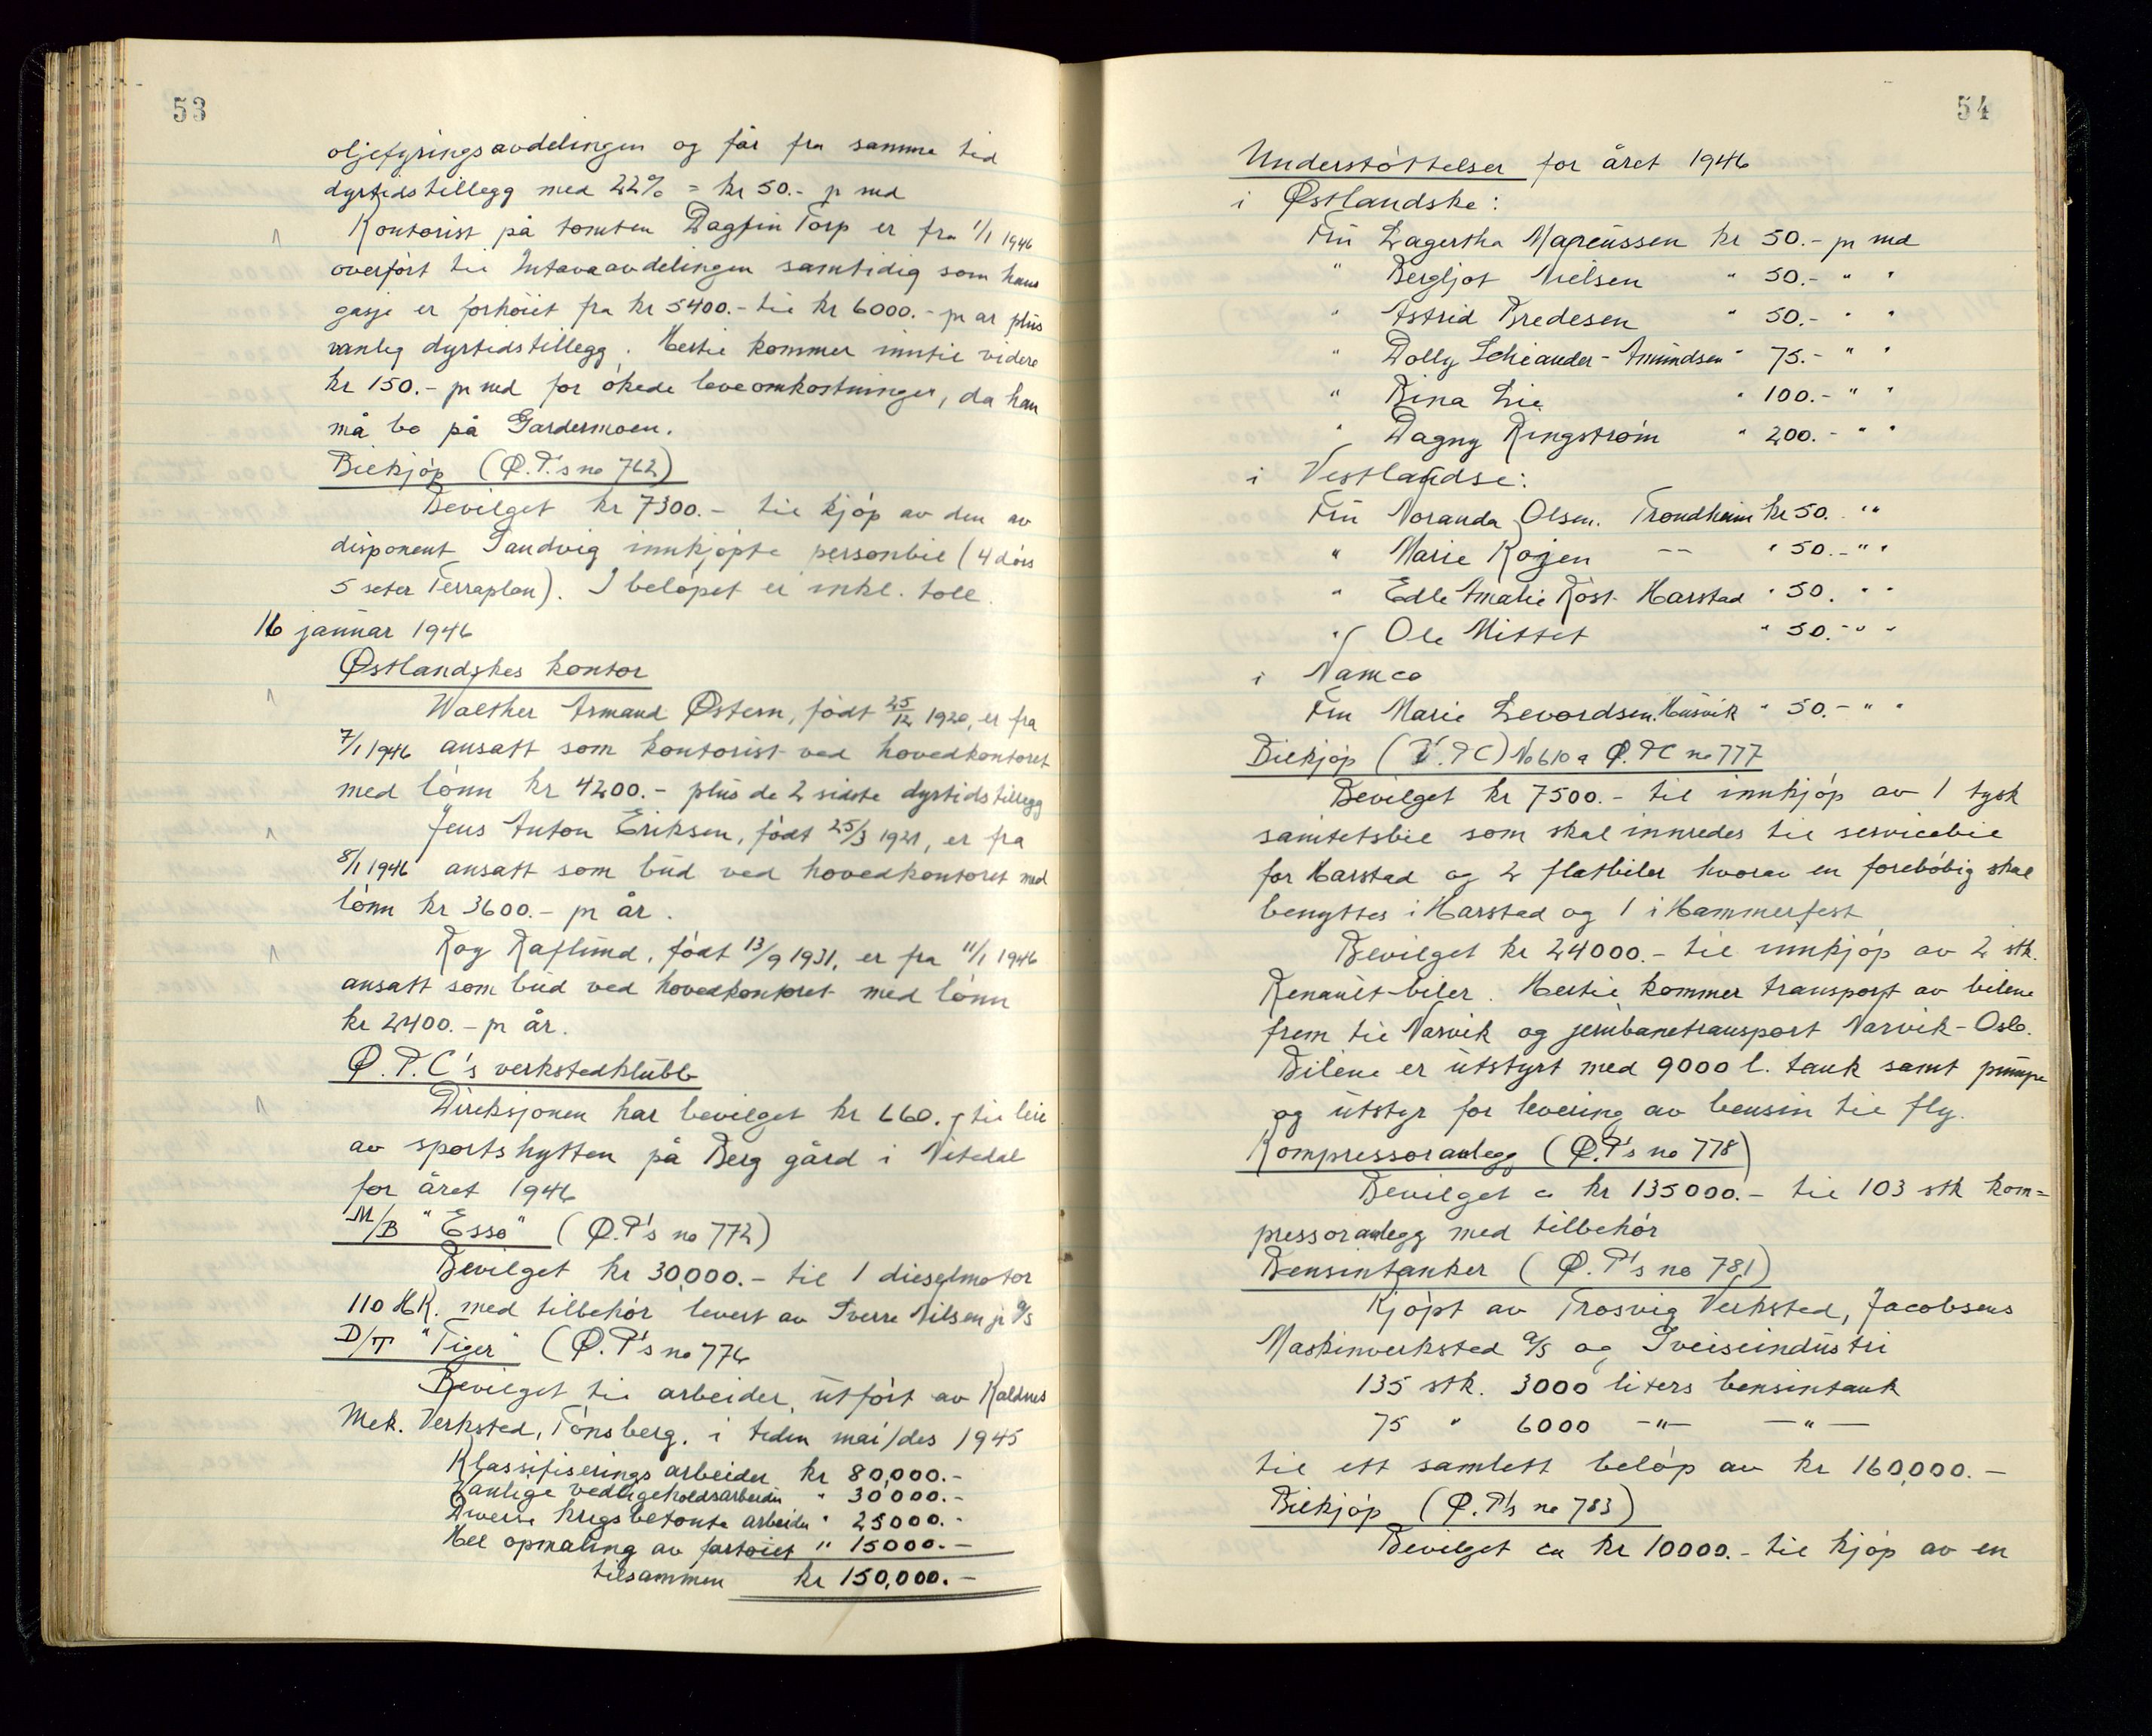 53
oljefyringsavdelingen og får fra samme tid
dyrtidstillegg med 22% = kr 50.- p md
Kontorist på tomten Dagfin Torp er fra 1/1 1946
overført til Intavaavdelingen samtidig som hans
gasje er forhöiet fra kr 5400.- til kr 6000.- pr år plus
vanlig dyrtidstillegg. Hertil kommer inntil videre
kr 150.- pr md for ökede leveomkostninger, da han
må bo på Gardermoen.
Bilkjöp (Ø.P.'s no 762)
Bevilget kr 7300.- til kjöp av den av
disponent Sandvig innkjöpte personbil (4 dörs
5 seter Terraplan). I belöpet er inkl. toll.
16 januar 1946
Østlandskes kontor
Walther Armand Østern, födt 25/12 1920, er fra
7/1 1946 ansatt som kontorist ved hovedkontoret
med lönn kr 4200.- plus de 2 sidste dyrtidstillegg
Jens Anton Eriksen, födt 25/3 1921, er fra
8/1 1946 ansatt som bud ved hovedkontoret med
lönn kr 3600.- pr år.
Roy Raflund, födt 13/9 1931, er fra 11/1 1946
ansatt som bud ved hovedkontoret med lönn
kr 2400.- pr år.
Ø.P.C's verkstedklubb
Direksjonen har bevilget kr 660.- til leie
av sportshytten på Berg gård i Nitedal
for året 1946
M/B "Esso" (Ø.P's no 772)
Bevilget kr 30,000.- til 1 dieselmotor
110 HK. med tilbehör levert av Sverre Nilsen jr A/S
D/T "Tiger" (Ø.P's no 776
Bevilget til arbeider, utfört av Kaldnes
Mek. Verksted, Tönsberg, i tiden mai/des 1945
Klassifiserings arbeider kr 80,000.-
Vanlige vedligeholdsarbeider " 30,000.-
Diverse krigsbetonte arbeider " 25000.-
Hel opmaling av fartöiet " 15000.-
tilsammen kr 150,000.-
54
Understöttelser for året 1946
i Østlandske:
Fru Lagertha Marcussen kr 50.- pr md
" Bergljot Nielsen " 50.- " "
" Astrid Bredesen " 50.- " "
" Dolly Schiander-Amundsen " 75.- " "
" Bina Lie " 100.- " "
" Dagny Ringström " 200.- " "
i Vestlandse:
Fru Noranda Olsen. Trondheim kr 50. " "
" Marie Rojen -- " 50.- " "
" Edle Amalie Röst. Harstad " 50. " "
" Ole Mittet " 50.- " "
i Namco
Fru Marie Levordsen. Husvik " 50.- " "
Bilkjöp (V.PC) No 610 a Ø.PC no 777
Bevilget kr 7500.- til innkjöp av 1 tysk
sanitetsbil som skal innredes til servicebil
for Harstad og 2 flatbiler hvorav en forelöbig skal
benyttes i Harstad og 1 i Hammerfest
Bevilget kr 24000.- til innkjöp av 2 stk.
Renault-biler. Hertil kommer transport av bilene
frem til Narvik og jernbanetransport Narvik-Oslo.
Bilene er utstyrt med 9000 l. tank samt pumpe
og utstyr for levering av bensin til fly.
Kompressoranlegg (Ø.P's no 778)
Bevilget ca kr 135000.- til 103 stk kom=
pressoranlegg med tilbehör
Bensintanker (Ø.P's no 781)
Kjöpt av Trosvig Verksted, Jacobsens
Maskinverksted A/S og Sveiseindustri
135 stk. 3000 liters bensintank
75 " 6000 -"- -"-
til ett samlett belöp av kr 160,000.-
Bilkjöp (Ø.P's no 783)
Bevilget ca kr 10000.- til kjöp av en